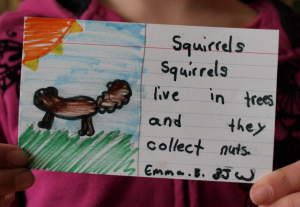 Squirrels
Squirrels
live in trees
and they
collect nuts.
Emma. B.